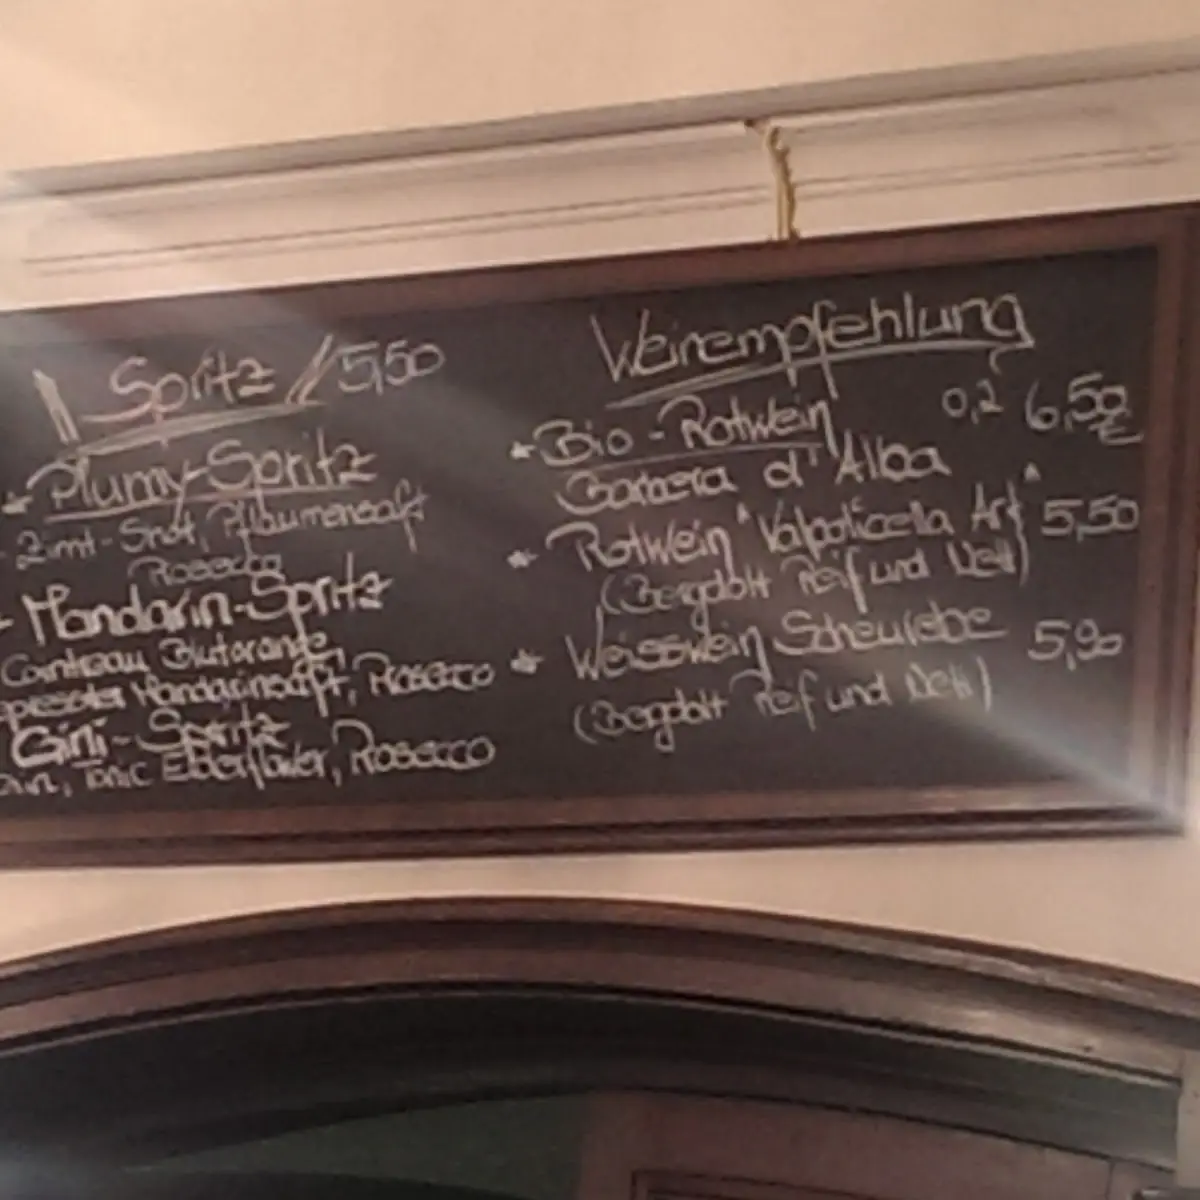 Spritz // 5,50
* Plumy-Spritz
- Zimt-Shot, Pflaumensaft
Rosecco
- Mandarin-Spritz
Cointreau Blutorange
Mandarinsaft, Rosecco
Gini-Spritz
Gin, Tonic Elderflower, Rosecco
Weinempfehlung
* Bio-Rotwein 0,2 6,50 €
Barbera d'Alba
* Rotwein "Valpolicella Art" 5,50
(Bergdolt Reif und Nett)
* Weisswein Scheurebe 5,90
(Bergdolt Reif und Nett)